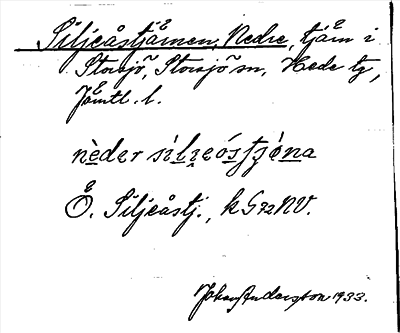 Siljeåstjärnen, Nedre, tjärn i
Storsjö, Storsjö sn, Hede tg,
Jämtl. l.
nèder sìlꞮeóstjóna
Ö. Siljeåstj., k G 72 NV.
Johan Anderzton 1933.